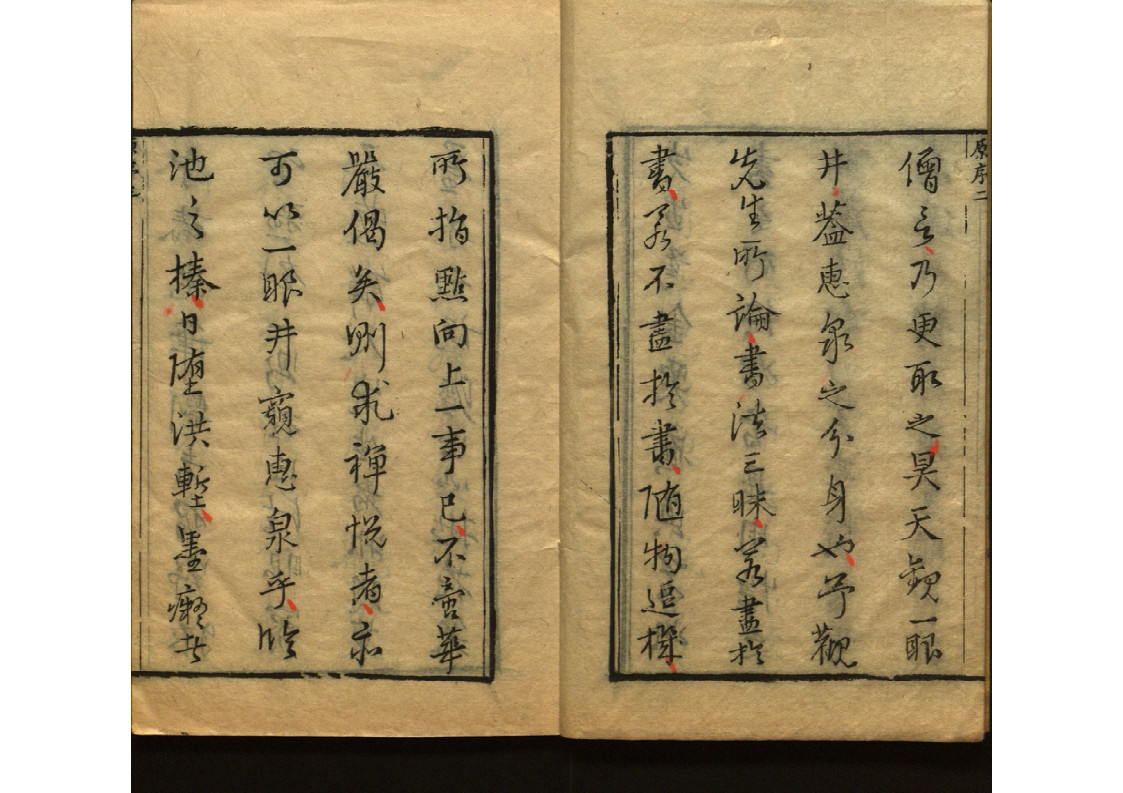 原序二
僧言乃更取之昊天觀一眼
井蓋惠泉之分身也予觀
先生所論書法三昧若盡於
書若不盡於書随物逗機
所指點向上一事已不啻華
嚴偈矣則求禪悦者亦
可以一眼井窺惠泉乎臨
池之榛日墮洪塹墨癡者